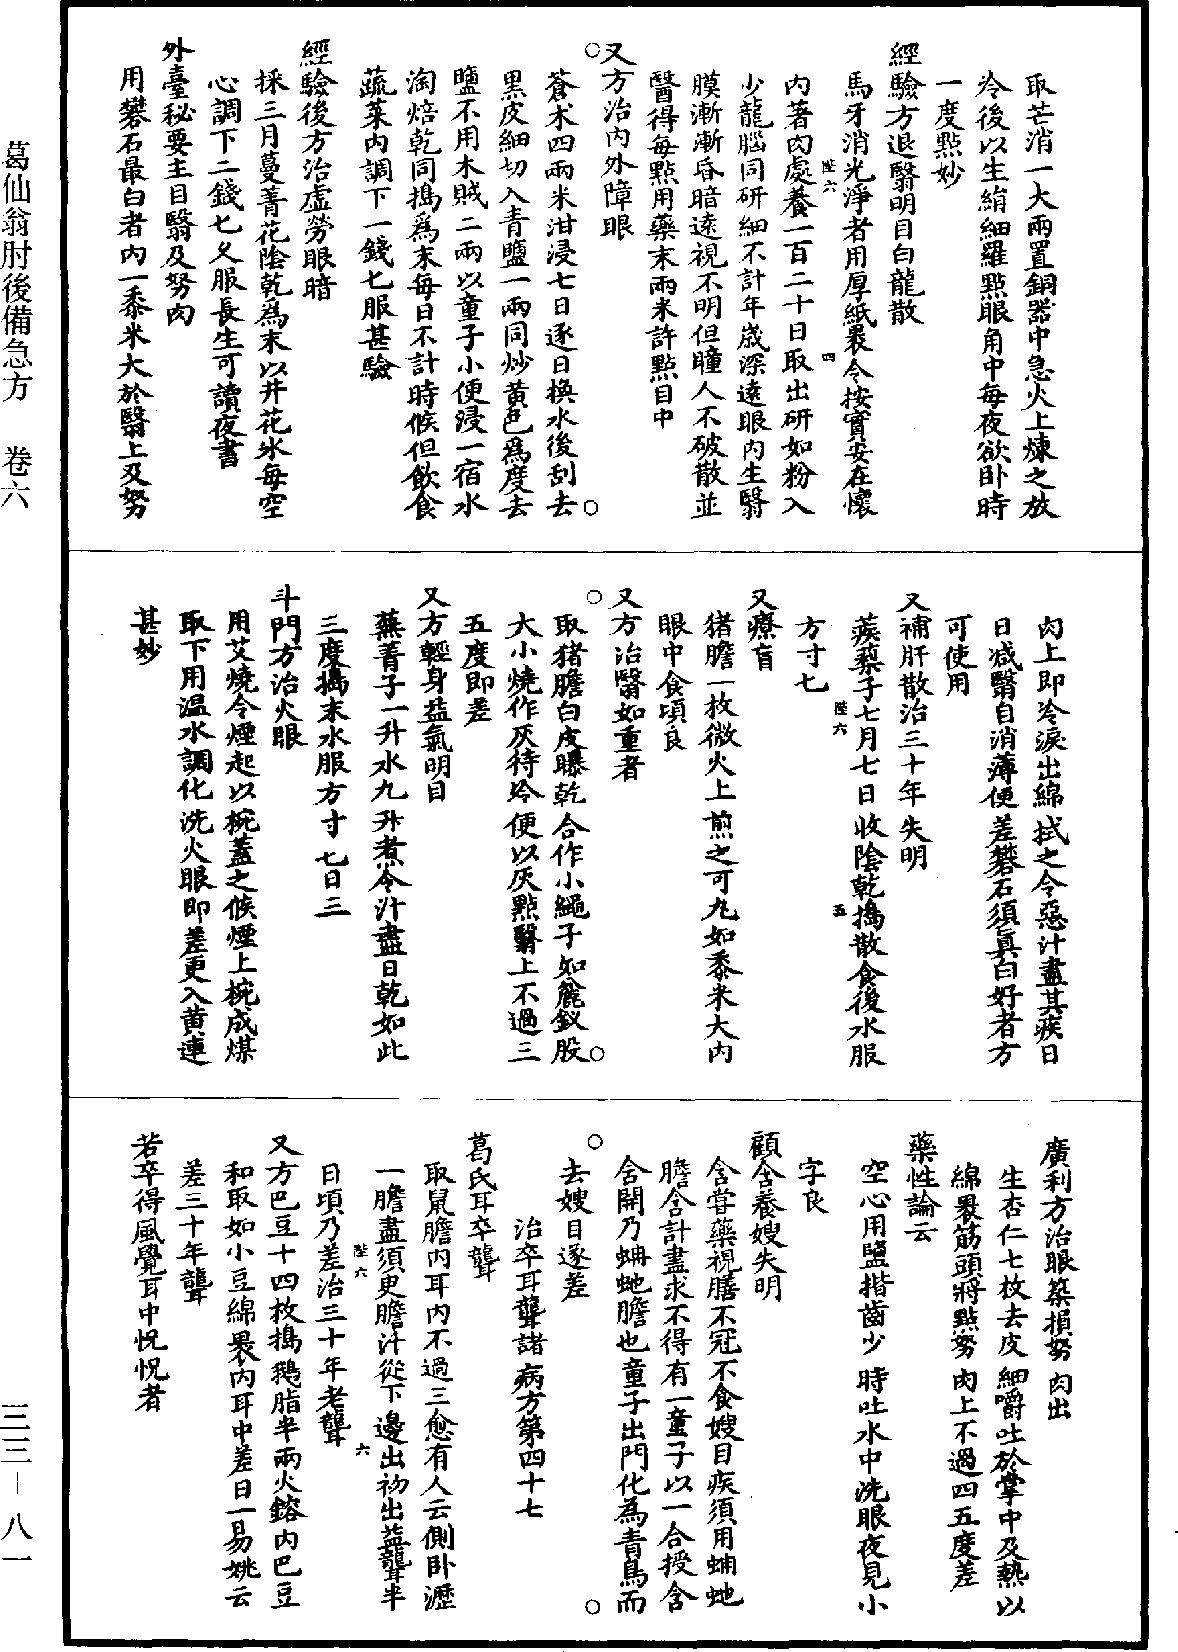 取芒消一大兩置銅器中急火上煉之放
冷後以生絹細羅點眼角中每夜欲卧時
一度點妙
經驗方退翳明目白龍散
馬牙消光淨者用厚紙裹令按實安在懷
陛六 四
內著肉處養一百二十日取出研如粉入
少龍腦同研細不計年歲深遠眼內生翳
膜漸漸昏暗遠視不明但瞳人不破散並
醫得每點用藥末兩米許點目中
又方治內外障眼
○ ○
蒼术四兩米泔浸七日逐日換水後刮去
黑皮細切入青鹽一兩同炒黃色爲度去
鹽不用木賊二兩以童子小便浸一宿水
淘焙乾同搗爲末每日不計時候但飲食
蔬菜內調下一錢匕服甚驗
經驗後方治虛勞眼暗
採三月蔓菁花陰乾爲末以井花水每空
心調下二錢匕久服長生可讀夜書
外臺秘要主目翳及努肉
用礬石最白者內一黍米大於翳上及努
肉上即冷淚出綿拭之令惡汁盡其疾日
日減翳自消薄便差礬石須真白好者方
可使用
又補肝散治三十年失明
蒺藜子七月七日收陰乾搗散食後水服
陛六 五
方寸匕
又療盲
猪膽一枚微火上煎之可丸如黍米大內
眼中食頃良
又方治翳如重者
○ ○
取猪膽白皮曝乾合作小繩子如麄釵股
大小燒作灰待冷便以灰點翳上不過三
五度即差
又方輕身益氣明目
蕪菁子一升水九升煮令汁盡日乾如此
三度搗末水服方寸匕日三
斗門方治火眼
用艾燒令煙起以椀蓋之候煙上椀成煤
取下用温水調化洗火眼即差更入黃連
甚妙
廣利方治眼築損努肉出
生杏仁七枚去皮細嚼吐於掌中及熱以
綿裹筯頭將點努肉上不過四五度差
藥性論云
空心用鹽揩齒少時吐水中洗眼夜見小
字良
顧含養嫂失明
含嘗藥視膳不冠不食嫂目疾須用蚺虵
膽含計盡求不得有一童子以一合授含
含開乃蚺虵膽也童子出門化為青鳥而
○ ○
去嫂目遂差
治卒耳聾諸病方第四十七
葛氏耳卒聾
取鼠膽內耳內不過三愈有人云側卧瀝
一膽盡須臾膽汁從下邊出初出益聾半
陛六 六
日頃乃差治三十年老聾
又方巴豆十四枚搗鵝脂半兩火鎔內巴豆
和取如小豆綿裹內耳中差日一易姚云
差三十年聾
若卒得風覺耳中怳怳者
葛仙翁肘後備急方 卷六
三三—八一